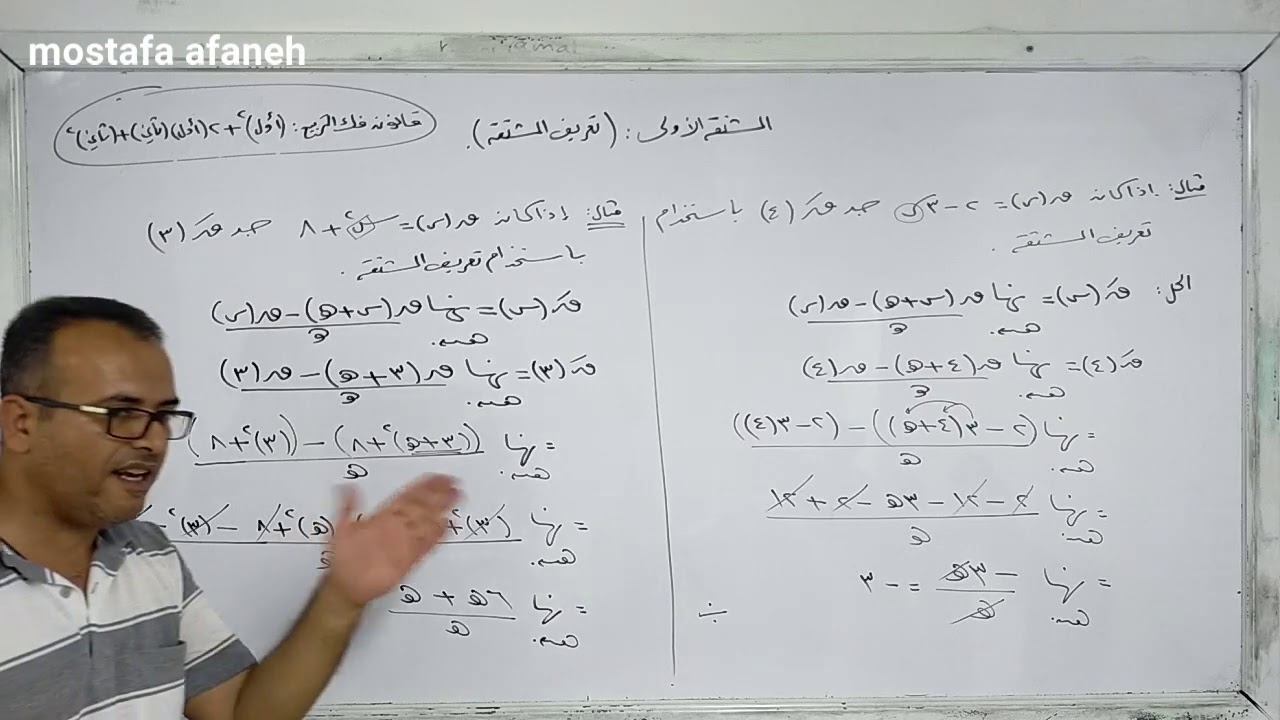 mostafa afaneh
المشتقة الأولى : (تعريف المشتقة).
قانون فك التربيع: (أول)² + ٢(أول)(ثاني) + (ثاني)²
مثال: إذا كان ق(س) = ٢ - ٣س جد قَ(٤) باستخدام
تعريف المشتقة .
الحل: قَ(س) = نها هـ←٠ (ق(س+هـ) - ق(س)) / هـ
قَ(٤) = نها هـ←٠ (ق(٤+هـ) - ق(٤)) / هـ
= نها هـ←٠ ((٢ - ٣(٤+هـ)) - (٢ - ٣(٤))) / هـ
= نها هـ←٠ (٢ - ١٢ - ٣هـ - ٢ + ١٢) / هـ
= نها هـ←٠ -٣هـ / هـ = -٣
مثال: إذا كان ق(س) = س² + ٨ جد قَ(٣)
باستخدام تعريف المشتقة .
قَ(س) = نها هـ←٠ (ق(س+هـ) - ق(س)) / هـ
قَ(٣) = نها هـ←٠ (ق(٣+هـ) - ق(٣)) / هـ
= نها هـ←٠ (((٣+هـ)² + ٨) - ((٣)² + ٨)) / هـ
= نها هـ←٠ (٣)² + (هـ)² + ٨ - (٣)² - / هـ
= نها هـ←٠ ٦هـ + هـ / هـ